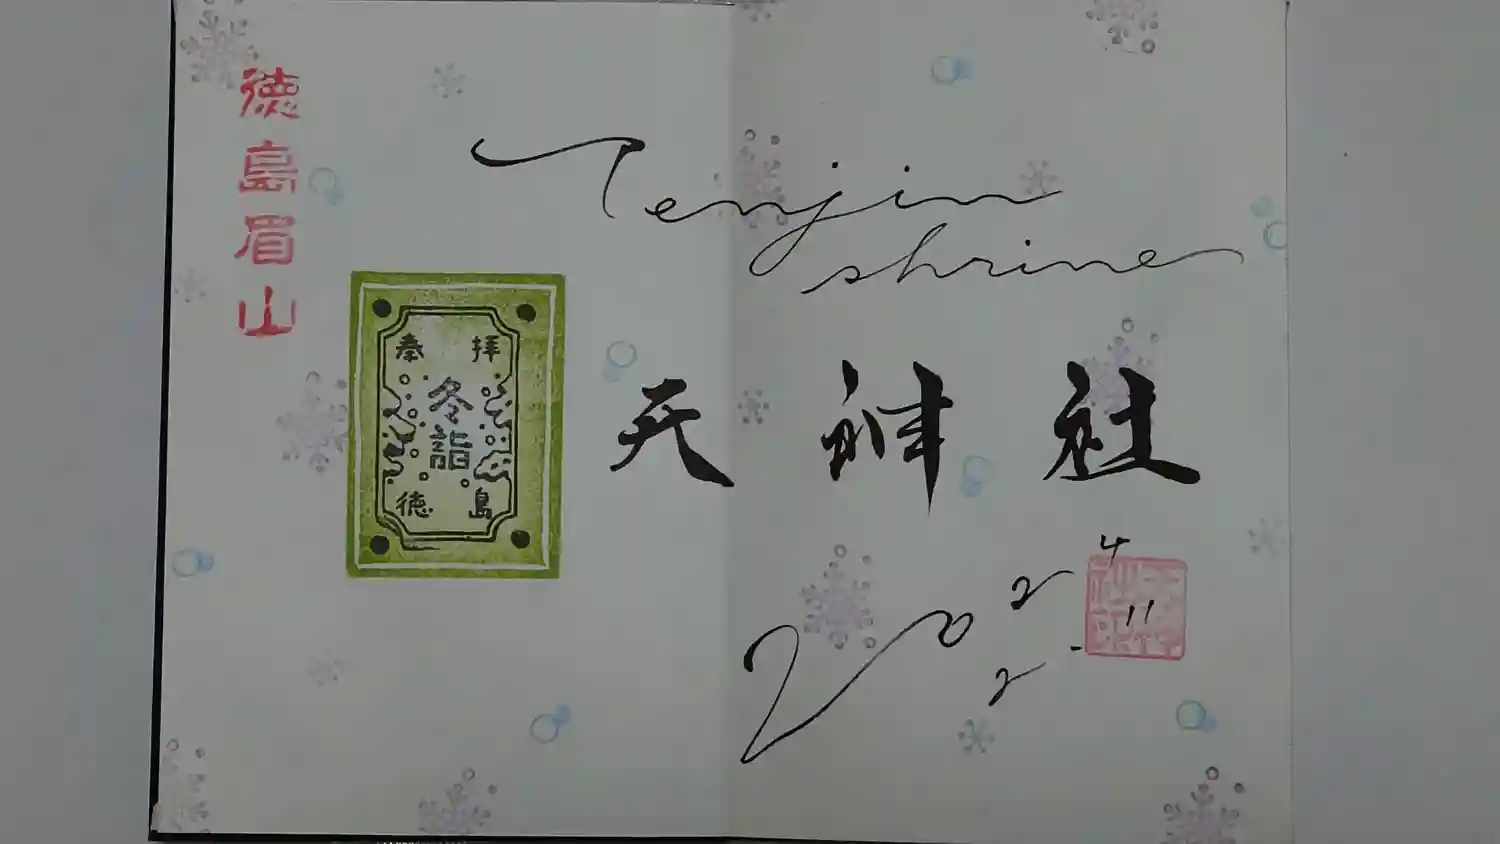 徳島眉山
奉拝
冬詣
徳島
Tenjin
shrine
天神社
2022.
4
11